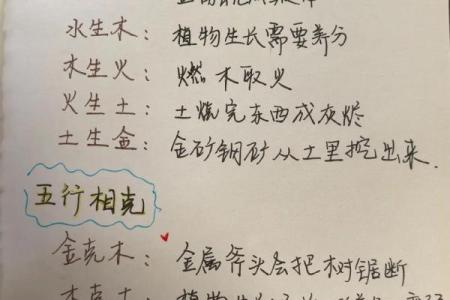 水生木：植物生长需要养分
木生火：燃木取火
火生土：土烧完东西成灰烬
土生金：金矿铜矿从土里挖出来.
五行相克
金克木：金属斧头会把树锯断
木克土：植物